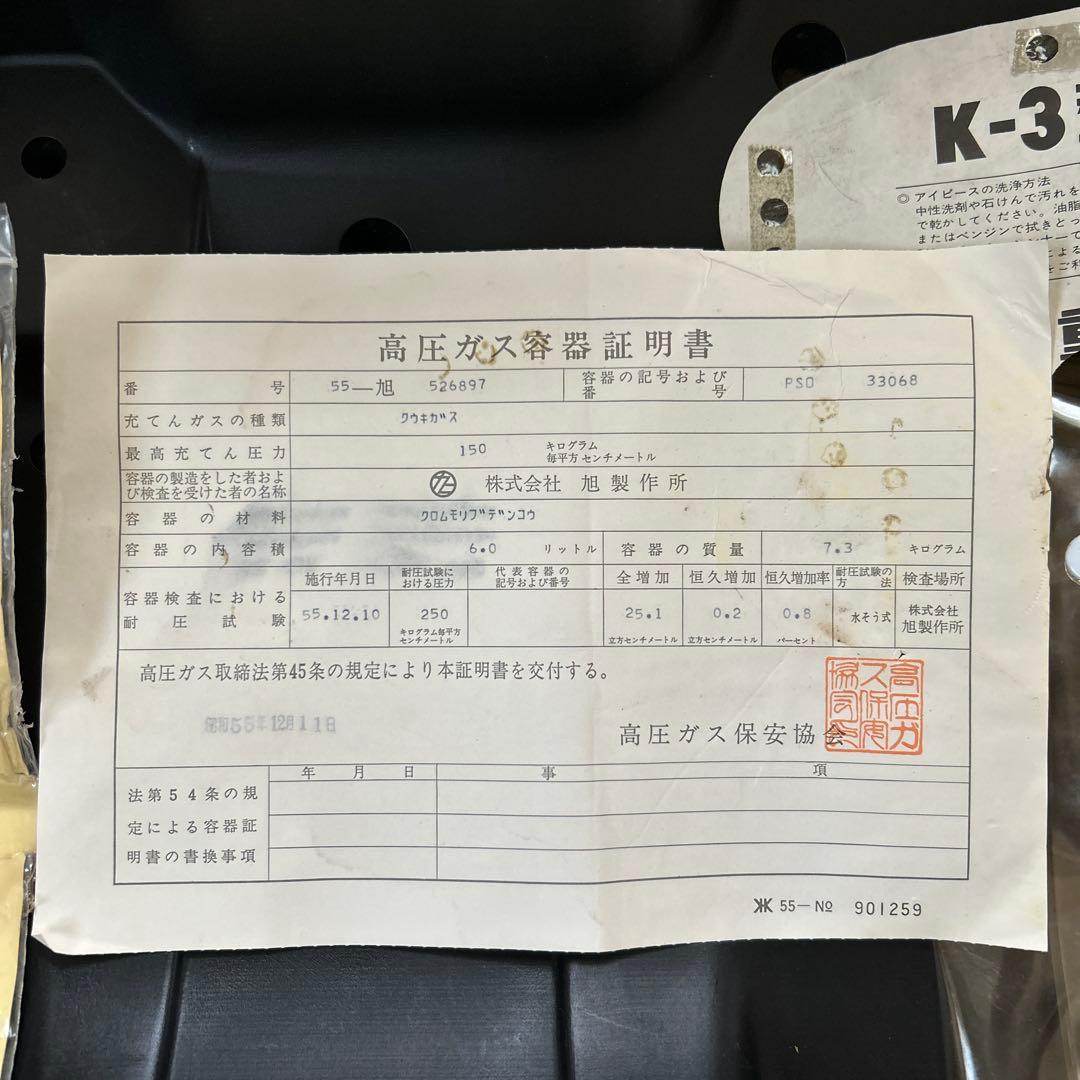 K-3
◎ アイピースの洗浄方法
中性洗剤や石けんで汚れを
で乾かしてください。油脂
またはベンジンで拭きとっ
ンナーで
よる
をご利
高圧ガス容器証明書
番号 55—旭 526897 容器の記号および番号 PSO 33068
充てんガスの種類 クウキガス
最高充てん圧力 150 キログラム毎平方センチメートル
容器の製造をした者および検査を受けた者の名称 株式会社 旭製作所
容器の材料 クロムモリブデンコウ
容器の内容積 6.0 リットル 容器の質量 7.3 キログラム
容器検査における耐圧試験
施行年月日 耐圧試験における圧力 代表容器の記号および番号 全増加 恒久増加 恒久増加率 耐圧試験の方法 検査場所
55.12.10 250 キログラム毎平方センチメートル 25.1 立方センチメートル 0.2 立方センチメートル 0.8 パーセント 水そう式 株式会社旭製作所
高圧ガス取締法第45条の規定により本証明書を交付する。
昭和55年12月11日
高圧ガス保安協会
高圧ガス保安協会印
年月日 事項
法第54条の規
定による容器証
明書の書換事項
55—№ 901259